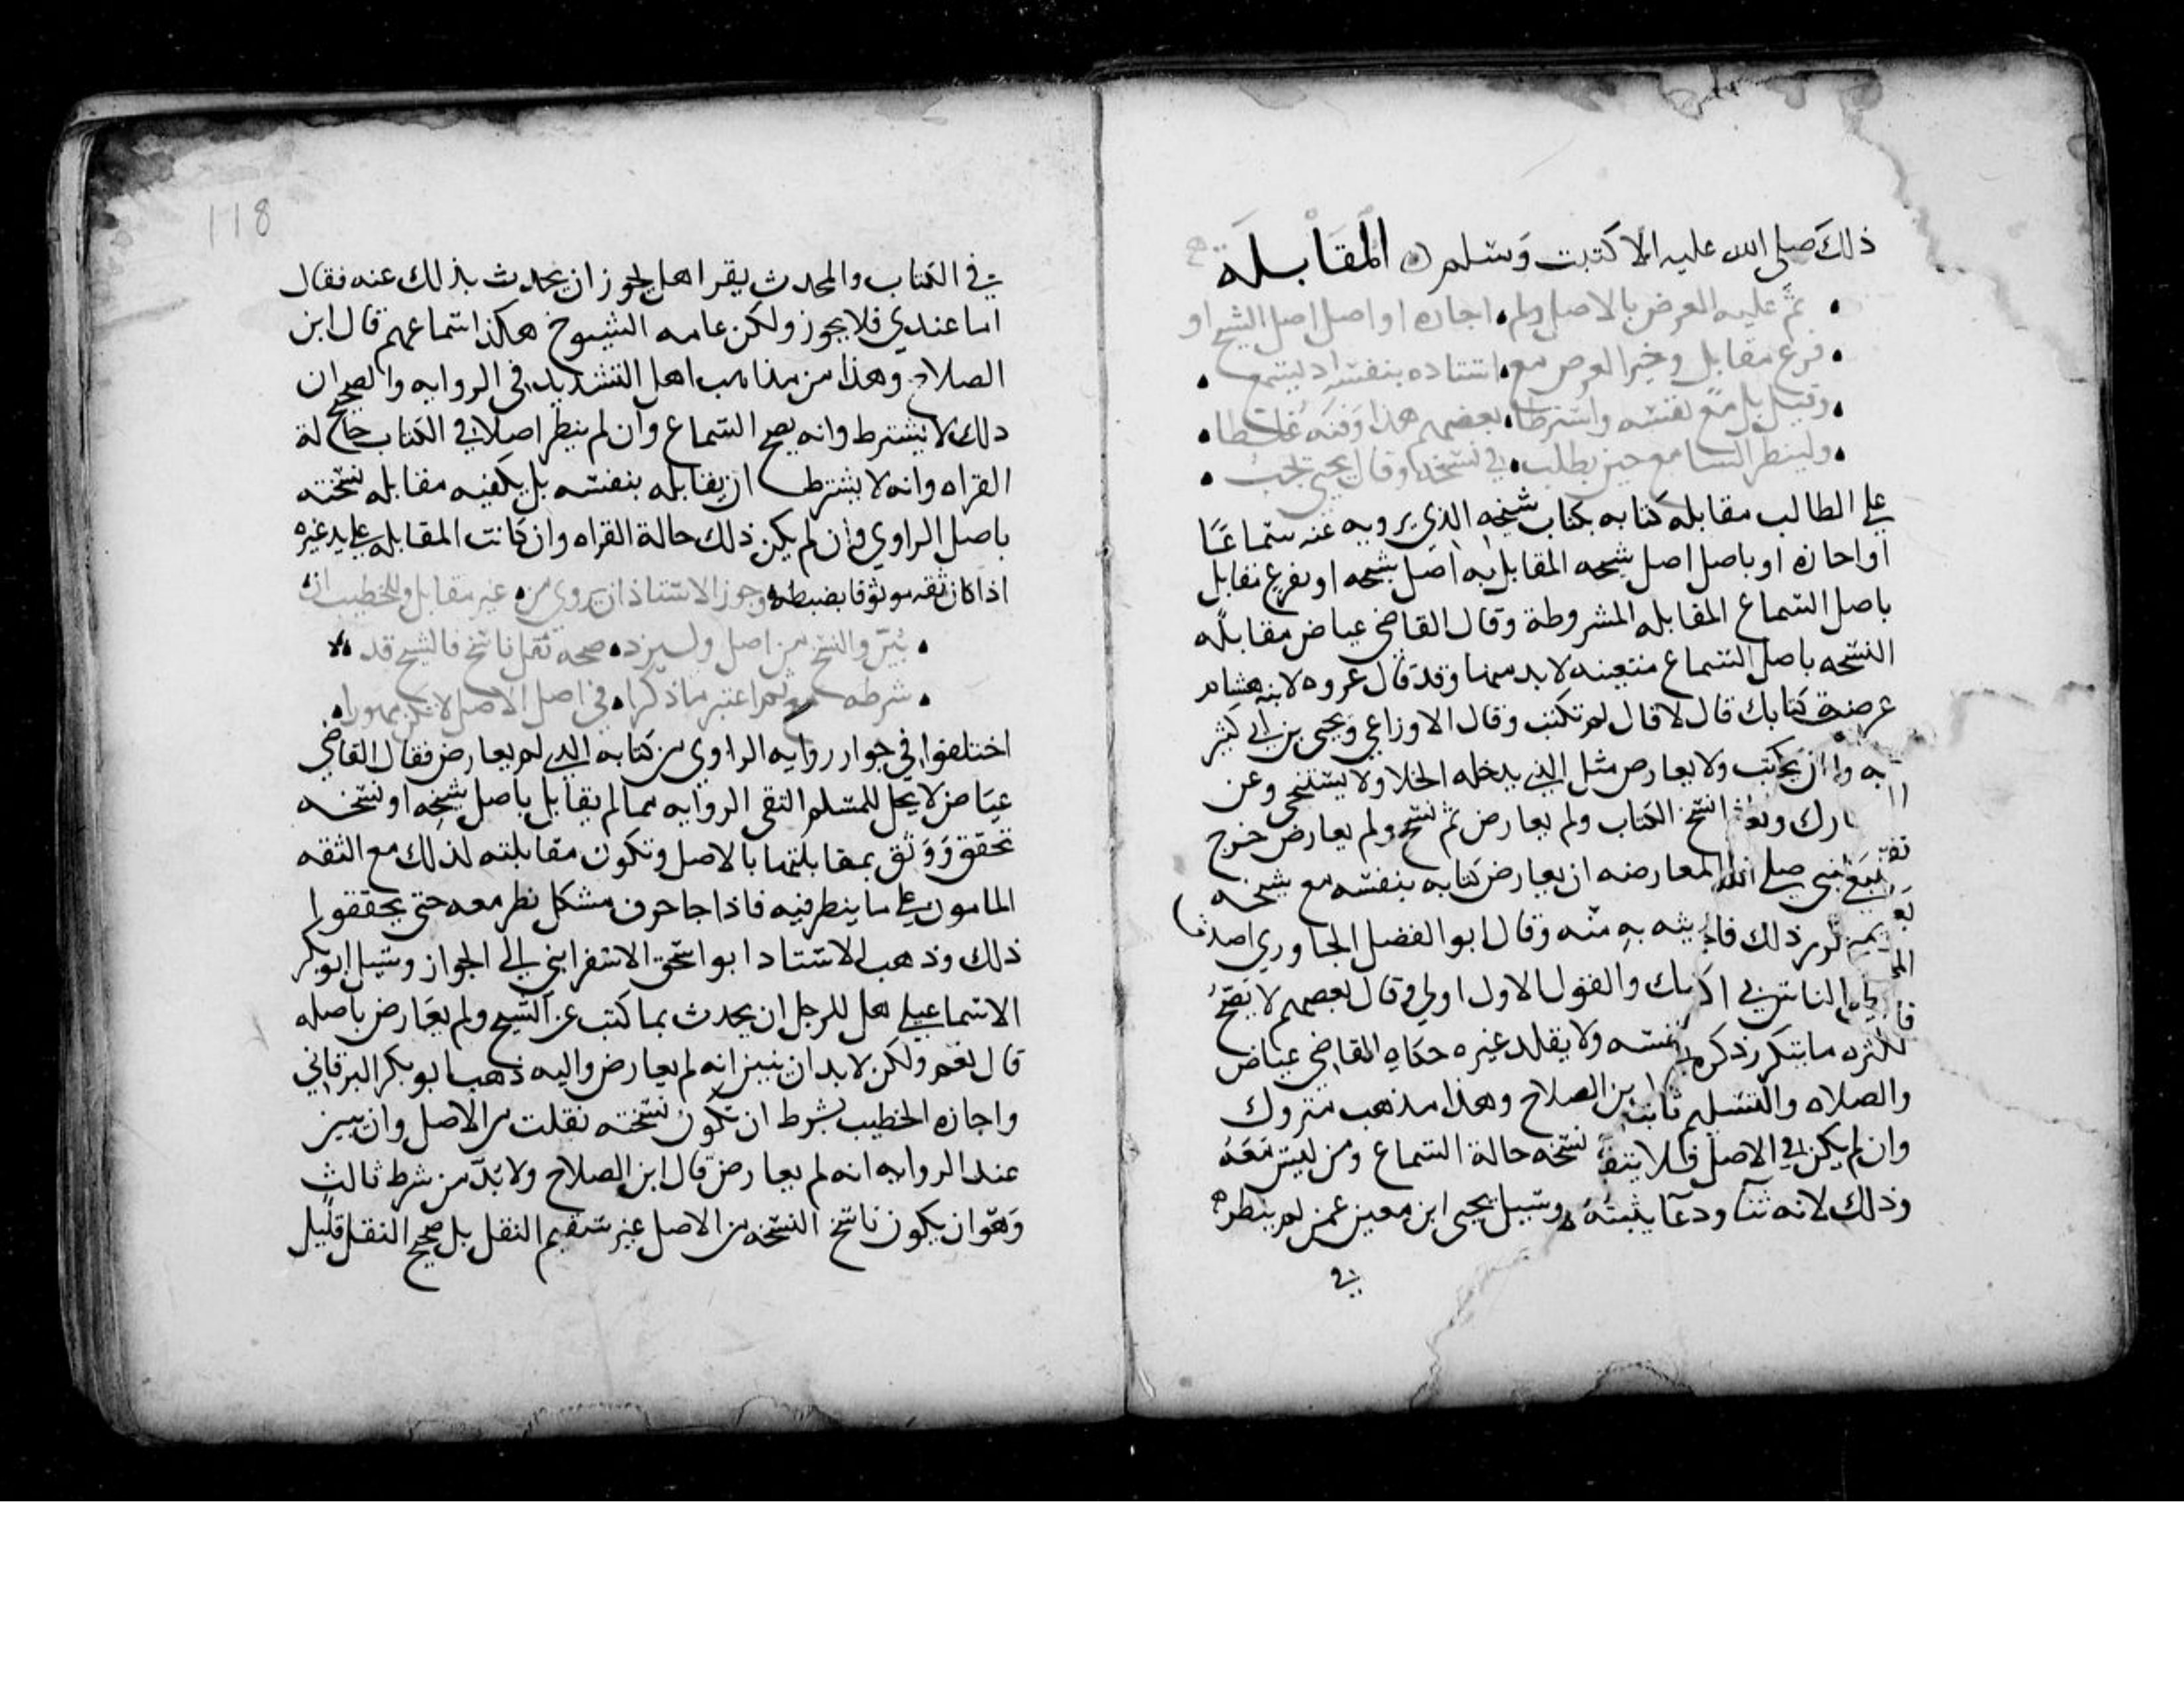 ذلك صلى الله عليه الا كتبت وسلم المقابلة
ثم عليه العرض بالاصل ولو اجازه او اصل اصل الشيخ او
فرع مقابل وخير العرض مع استاده بنفسه اذ يسمع
وقيل بل مع نفسه واشترطا بعضهم هذا وفيه غلطا
ولينظر السامع حين يطلب في نسخة وقال يحيى تجب
على الطالب مقابله كتابه بكتاب شيخه الذي يرويه عنه سماعا
او اجازه او باصل اصل شيخه المقابل به اصل شيخه او بفرع مقابل
باصل السماع المقابله المشروطة وقال القاضي عياض مقابله
النسخه باصل السماع متعينه لا بد منها وقد قال عروه لابنه هشام
عرضت كتابك قال لا قال لم تكتب وقال الاوزاعي ويحيى بن ابي كثير
يكتب ولا يعارض مثل الذي يدخله الخلا ولا يستنجي وعن
انسخ الكتاب ولم يعارض ثم نسخ ولم يعارض خرج
صلى الله المعارضه ان يعارض كتابه بنفسه مع شيخه
ذلك به منه وقال ابو الفضل الجارودي اصدق
والقول الاول اولى وقال بعضهم لا يصح
ما يتكرر ذكره نفسه ولا يقلد غيره حكاه القاضي عياض
والصلاه والتسليم ابن الصلاح وهذا مذهب متروك
وان لم يكن في الاصل فلا نسخه حالة السماع ومن ليس معه
وذلك لانه ثنا ودعا يثبته وسيل يحيى ابن معين عمن لم ينظر
في
في الكتاب والمحدث يقرا هل يجوز ان يحدث بذلك عنه فقال
اما عندي فلا يجوز ولكن عامه الشيوخ هكذا سماعهم قال ابن
الصلاح وهذا من مذاهب اهل التشديد في الروايه والصحيح ان
ذلك لا يشترط وانه يصح السماع وان لم ينظر اصلا في الكتاب حالة
القراه وانه لا يشترط ان يقابله بنفسه بل يكفيه مقابله نسخته
باصل الراوي وان لم يكن ذلك حالة القراه وان كانت المقابله على يد غيره
اذا كان ثقه موثوقا بضبطه وجوز الاستاذ ان يروي من غير مقابل وللخطيب ان
بين والنسخ من اصل وليزد صحه نقل ناسخ فالشيخ قد
شرطه ثم اعتبر ما ذكرا في اصل الاصل لا تكن مهورا
اختلفوا في جواز روايه الراوي من كتابه الذي لم يعارض فقال القاضي
عياض لا يحل للمسلم التقي الروايه مما لم يقابل باصل شيخه او نسخه
تحقق ووثق بمقابلتها بالاصل وتكون مقابلته لذلك مع الثقه
المامون على ما ينظر فيه فاذا جا حرف مشكل نظر معه حتى يحققوا
ذلك وذهب الاستاد ابو اسحق الاسفرايني الى الجواز وسيل ابو بكر
الاسماعيلي هل للرجل ان يحدث بما كتب عن الشيخ ولم يعارض باصله
قال نعم ولكن لا بد ان يبين انه لم يعارض واليه ذهب ابو بكر البرقاني
واجازه الخطيب بشرط ان تكون نسخته نقلت من الاصل وان يبين
عند الروايه انه لم يعارض قال ابن الصلاح ولا بد من شرط ثالث
وهو ان يكون ناسخ النسخه من الاصل غير سقيم النقل بل صحيح النقل قليل
118